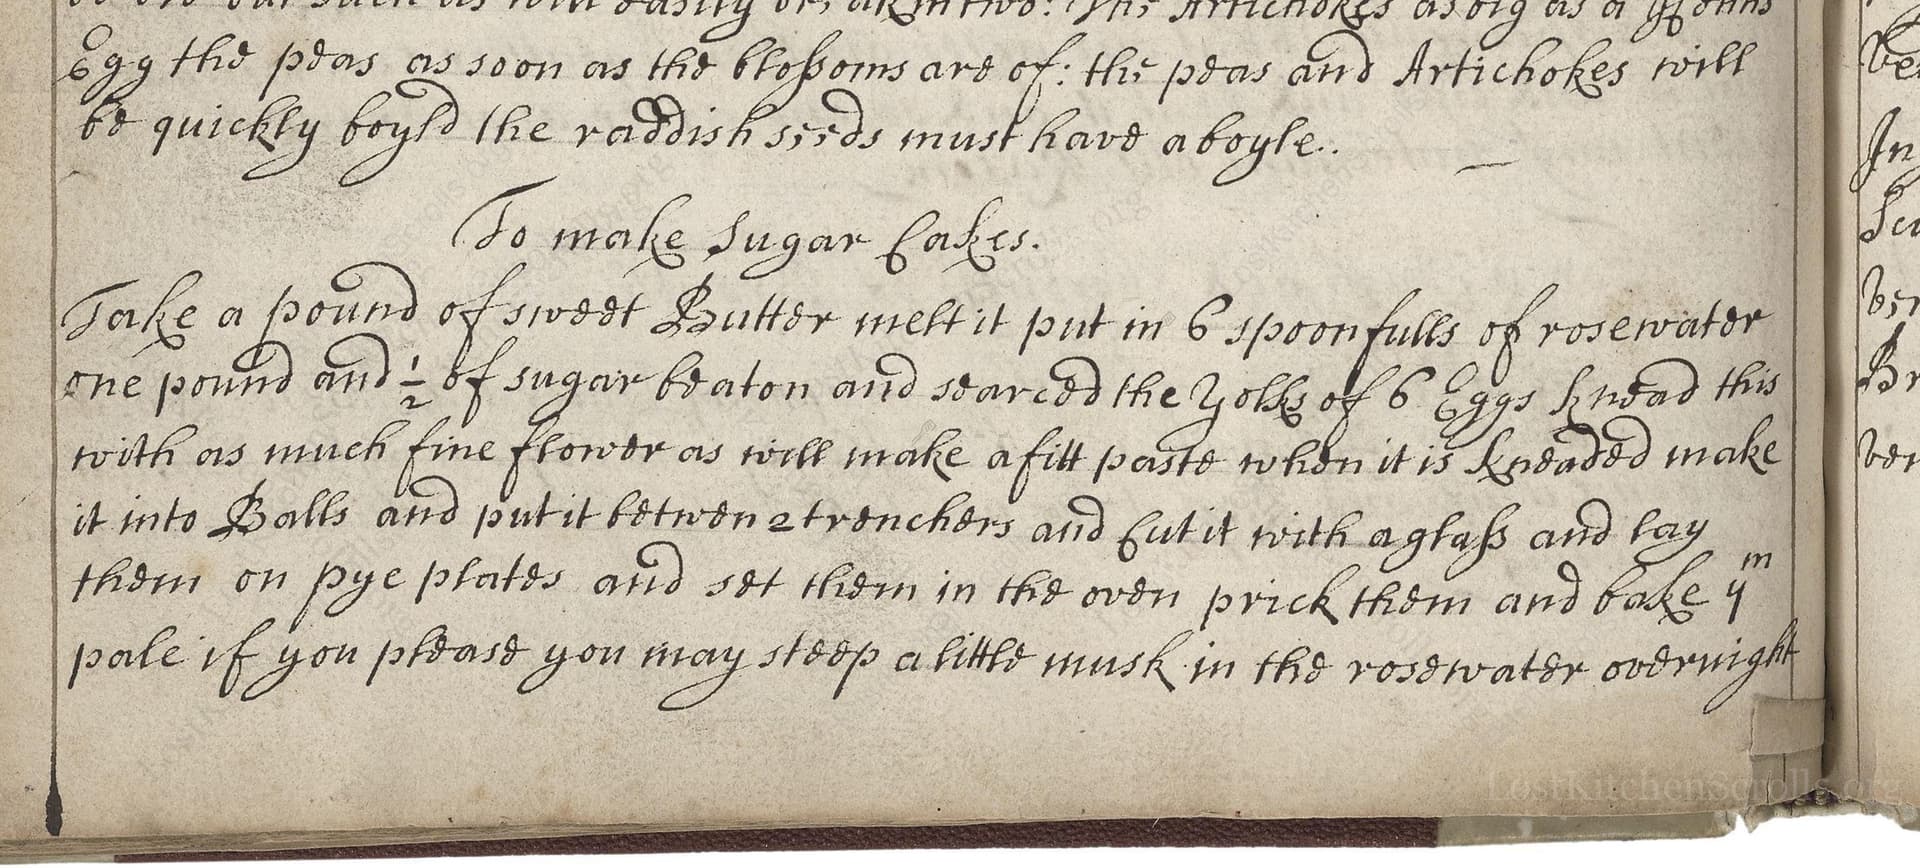 be old but such as will easily break in two: the Artichokes as big as a Henns
Egg the peas as soon as the bloſsoms are of: the peas and Artichokes will
be quickly boyld the raddish seeds must have a boyle..
To make Sugar Cakes.
Take a pound of sweet Butter melt it put in 6 spoonfulls of rosewater
one pound and 1/2 of sugar beaton and searced the Yolks of 6 Eggs knead this
with as much fine flower as will make a fitt paste when it is kneaded make
it into Balls and put it betwen 2 trenchers and Cut it with a glaſs and lay
them on pye plates and set them in the oven prick them and bake yᵐ
pale if you please you may steep a little musk in the rosewater overnight
LostKitchenScrolls.org